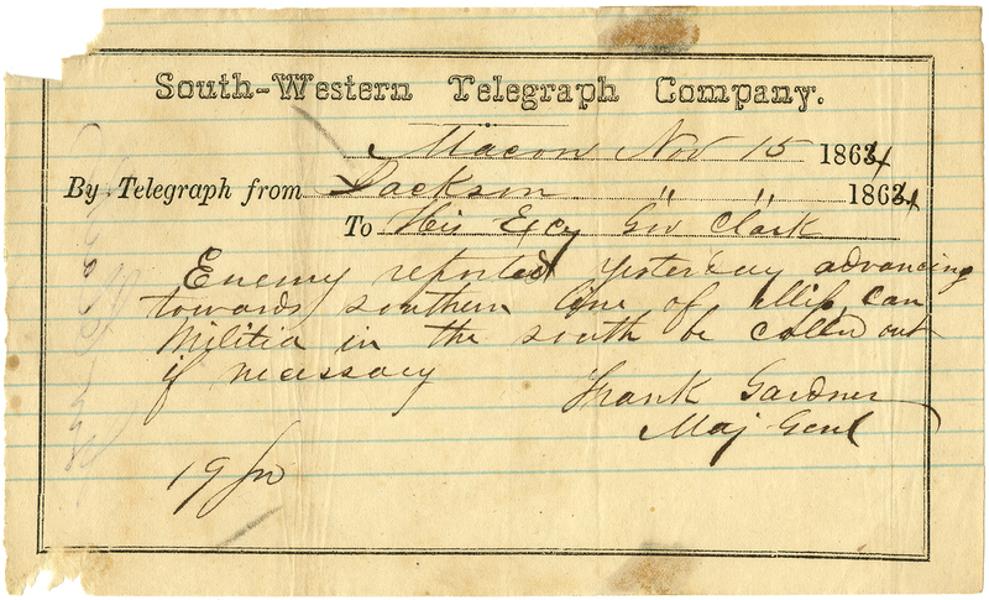 South-Western Telegraph Company.
Macon Nov 15 1864
By Telegraph from Jackson " " 1864
To His Excy Gov Clark
Enemy reported yesterday advancing
towards southern line of Miss, can
Militia in the south be called out
if necessary
Frank Gardner
Maj Genl
19